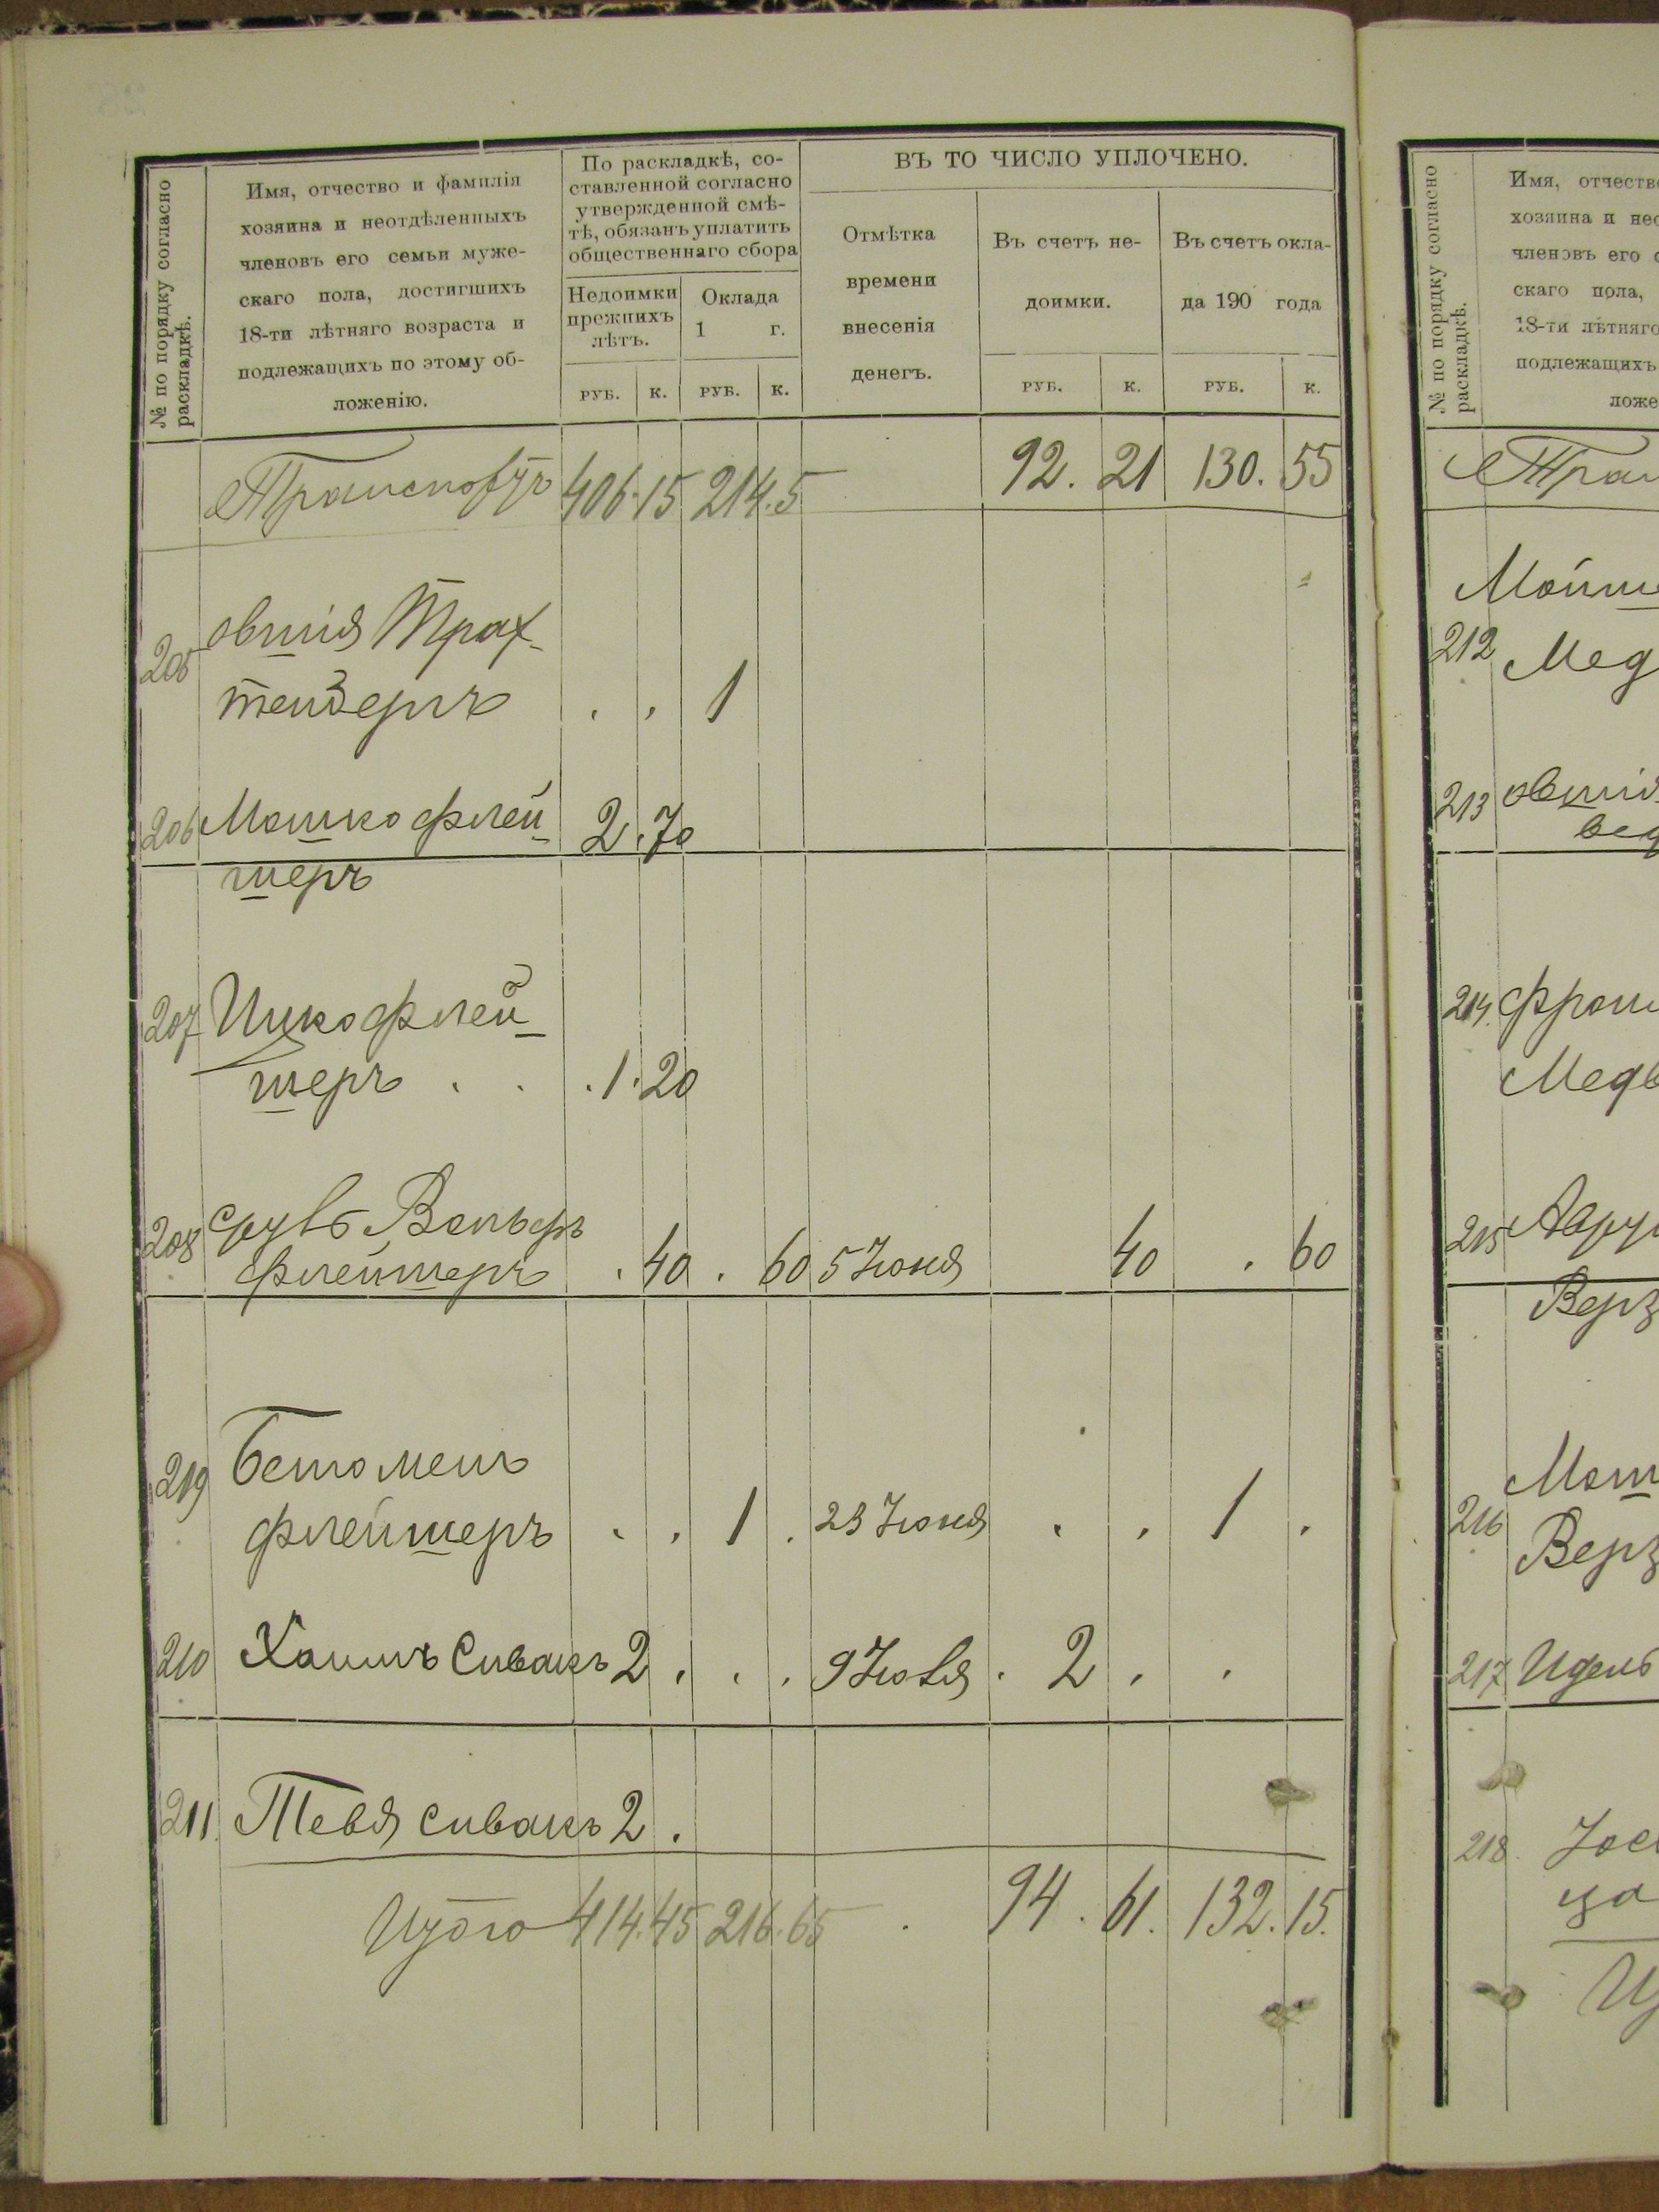 № по порядку согласно раскладкѣ.
Имя, отчество и фамилія
хозяина и неотдѣленныхъ
членовъ его семьи муже-
скаго пола, достигшихъ
18-ти лѣтняго возраста и
подлежащихъ по этому об-
ложенію.
По раскладкѣ, со-
ставленной согласно
утвержденной смѣ-
тѣ, обязанъ уплатить
общественнаго сбора
Недоимки
прежнихъ
лѣтъ.
Оклада
1 г.
ВЪ ТО ЧИСЛО УПЛОЧЕНО.
Отмѣтка
времени
внесенія
денегъ.
Въ счетъ не-
доимки.
Въ счетъ окла-
да 190 года
РУБ. К. РУБ. К. РУБ. К. РУБ. К.
Транспортъ 406.15 214.5 92. 21 130. 55
205 овшія Трах-
тенбергъ . . 1
206 Мошко Флей- 2.70
шеръ
207 Ицко Флей-
шеръ . . . 1.20
208 Вольфъ
Флейшеръ . 40 . 60 5 Іюня 40 . 60
219
Флейшеръ . . 1 . 23 Іюня . . 1 .
210 Хаимъ Сивакъ 2 . . . 9 Іюля . 2 . .
211. Тевя Сивакъ 2 .
Итого 414.45 216.65 . 94 . 61. 132.15.
№ по порядку согласно раскладкѣ.
Имя, отчество
хозяина и нео
членовъ его с
скаго пола,
18-ти лѣтняго
подлежащихъ
ложе
Тран
Мойш
212 Мед
213 овшія
вед
214. Фрои
Медв
215 Аару
Верз
Мош
216 Верз
217 Идель
218. Іос
ца
Ит